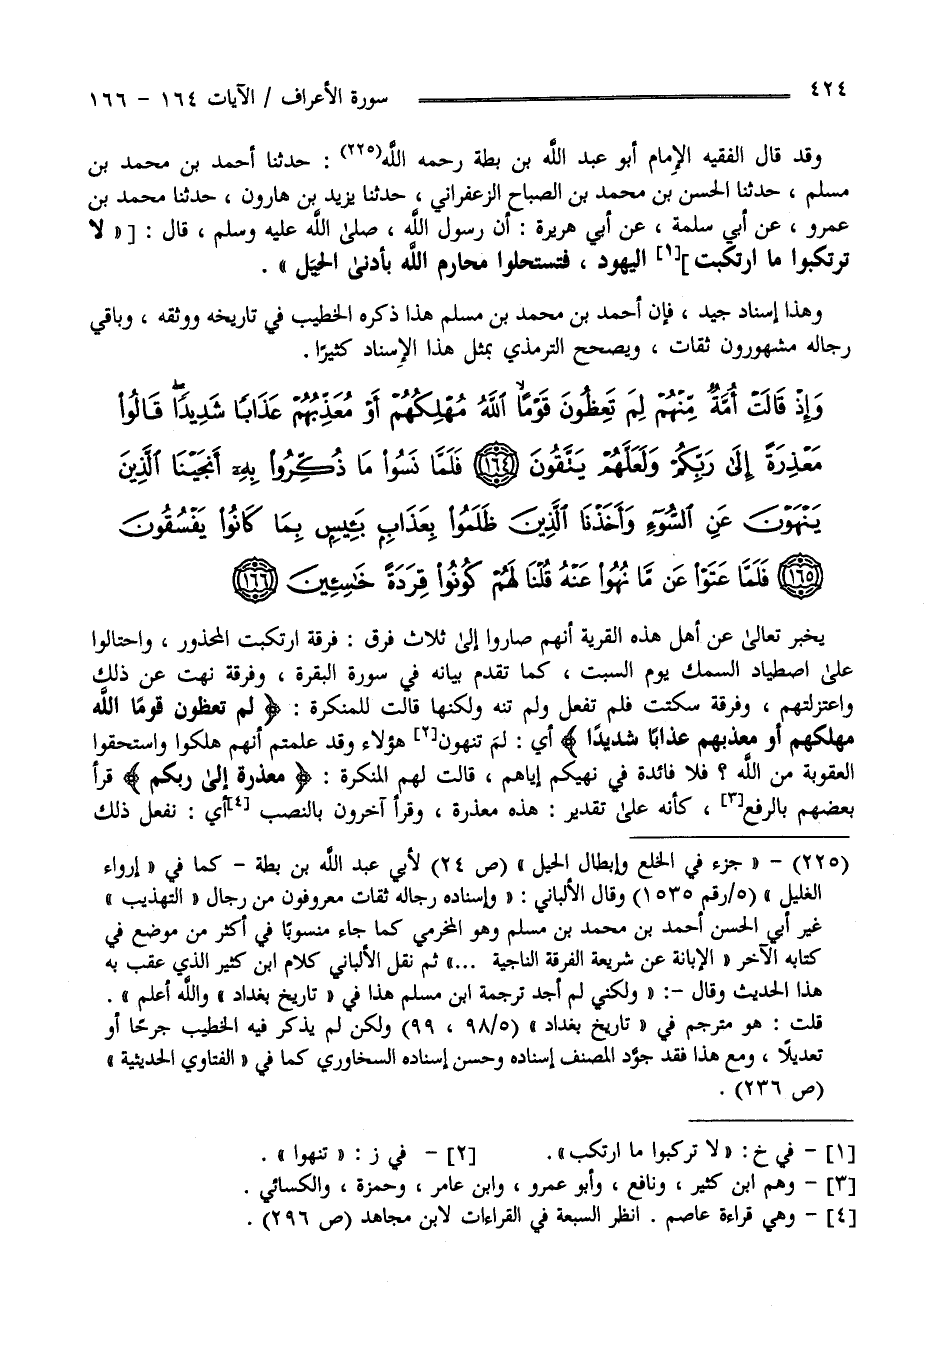 ٤٢٤ سورة الأعراف / الآيات ١٦٤ - ١٦٦
وقد قال الفقيه الإمام أبو عبد الله بن بطة رحمه الله(٢٢٥) : حدثنا أحمد بن محمد بن
مسلم ، حدثنا الحسن بن محمد بن الصباح الزعفراني ، حدثنا يزيد بن هارون ، حدثنا محمد بن
عمرو ، عن أبي سلمة ، عن أبي هريرة : أن رسول الله ، صلى الله عليه وسلم ، قال : [« لا
ترتكبوا ما ارتكبت ][١] اليهود ، فتستحلوا محارم الله بأدنى الحيَل » .
وهذا إسناد جيد ، فإن أحمد بن محمد بن مسلم هذا ذكره الخطيب في تاريخه ووثقه ، وباقي
رجاله مشهورون ثقات ، ويصحح الترمذي بمثل هذا الإسناد كثيرًا .
وَإِذْ قَالَتْ أُمَّةٌ مِّنْهُمْ لِمَ تَعِظُونَ قَوْمًا ۙ ٱللَّهُ مُهْلِكُهُمْ أَوْ مُعَذِّبُهُمْ عَذَابًا شَدِيدًا ۖ قَالُوا۟
مَعْذِرَةً إِلَىٰ رَبِّكُمْ وَلَعَلَّهُمْ يَتَّقُونَ ١٦٤ فَلَمَّا نَسُوا۟ مَا ذُكِّرُوا۟ بِهِۦٓ أَنجَيْنَا ٱلَّذِينَ
يَنْهَوْنَ عَنِ ٱلسُّوٓءِ وَأَخَذْنَا ٱلَّذِينَ ظَلَمُوا۟ بِعَذَابٍۭ بَـِٔيسٍۭ بِمَا كَانُوا۟ يَفْسُقُونَ
١٦٥ فَلَمَّا عَتَوْا۟ عَن مَّا نُهُوا۟ عَنْهُ قُلْنَا لَهُمْ كُونُوا۟ قِرَدَةً خَـٰسِـِٔينَ ١٦٦
يخبر تعالى عن أهل هذه القرية أنهم صاروا إلى ثلاث فرق : فرقة ارتكبت المحذور ، واحتالوا
على اصطياد السمك يوم السبت ، كما تقدم بيانه في سورة البقرة ، وفرقة نهت عن ذلك
واعتزلتهم ، وفرقة سكتت فلم تفعل ولم تنه ولكنها قالت للمنكرة : ﴿ لم تعظون قومًا الله
مهلكهم أو معذبهم عذابًا شديدًا ﴾ أي : لمَ تنهون[٢] هؤلاء وقد علمتم أنهم هلكوا واستحقوا
العقوبة من الله ؟ فلا فائدة في نهيكم إياهم ، قالت لهم المنكرة : ﴿ معذرة إلى ربكم ﴾ قرأ
بعضهم بالرفع[٣] ، كأنه على تقدير : هذه معذرة ، وقرأ آخرون بالنصب [٤]أي : نفعل ذلك
(٢٢٥) - « جزء في الخلع وإبطال الحيل » (ص ٢٤) لأبي عبد الله بن بطة - كما في « إرواء
الغليل » (٥/رقم ١٥٣٥) وقال الألباني : « وإسناده رجاله ثقات معروفون من رجال « التهذيب »
غير أبي الحسن أحمد بن محمد بن مسلم وهو المخرمي كما جاء منسوبًا في أكثر من موضع في
كتابه الآخر « الإبانة عن شريعة الفرقة الناجية ...» ثم نقل الألباني كلام ابن كثير الذي عقب به
هذا الحديث وقال -: « ولكني لم أجد ترجمة ابن مسلم هذا في « تاريخ بغداد » والله أعلم » .
قلت : هو مترجم في « تاريخ بغداد » (٩٨/٥ ، ٩٩) ولكن لم يذكر فيه الخطيب جرحًا أو
تعديلًا ، ومع هذا فقد جوَّد المصنف إسناده وحسن إسناده السخاوري كما في « الفتاوي الحديثية »
(ص ٢٣٦) .
[١] - في خ: « لا تركبوا ما ارتكب». [٢] - في ز : « تنهوا » .
[٣] - وهم ابن كثير ، ونافع ، وأبو عمرو ، وابن عامر ، وحمزة ، والكسائي .
[٤] - وهي قراءة عاصم . انظر السبعة في القراءات لابن مجاهد (ص ٢٩٦) .